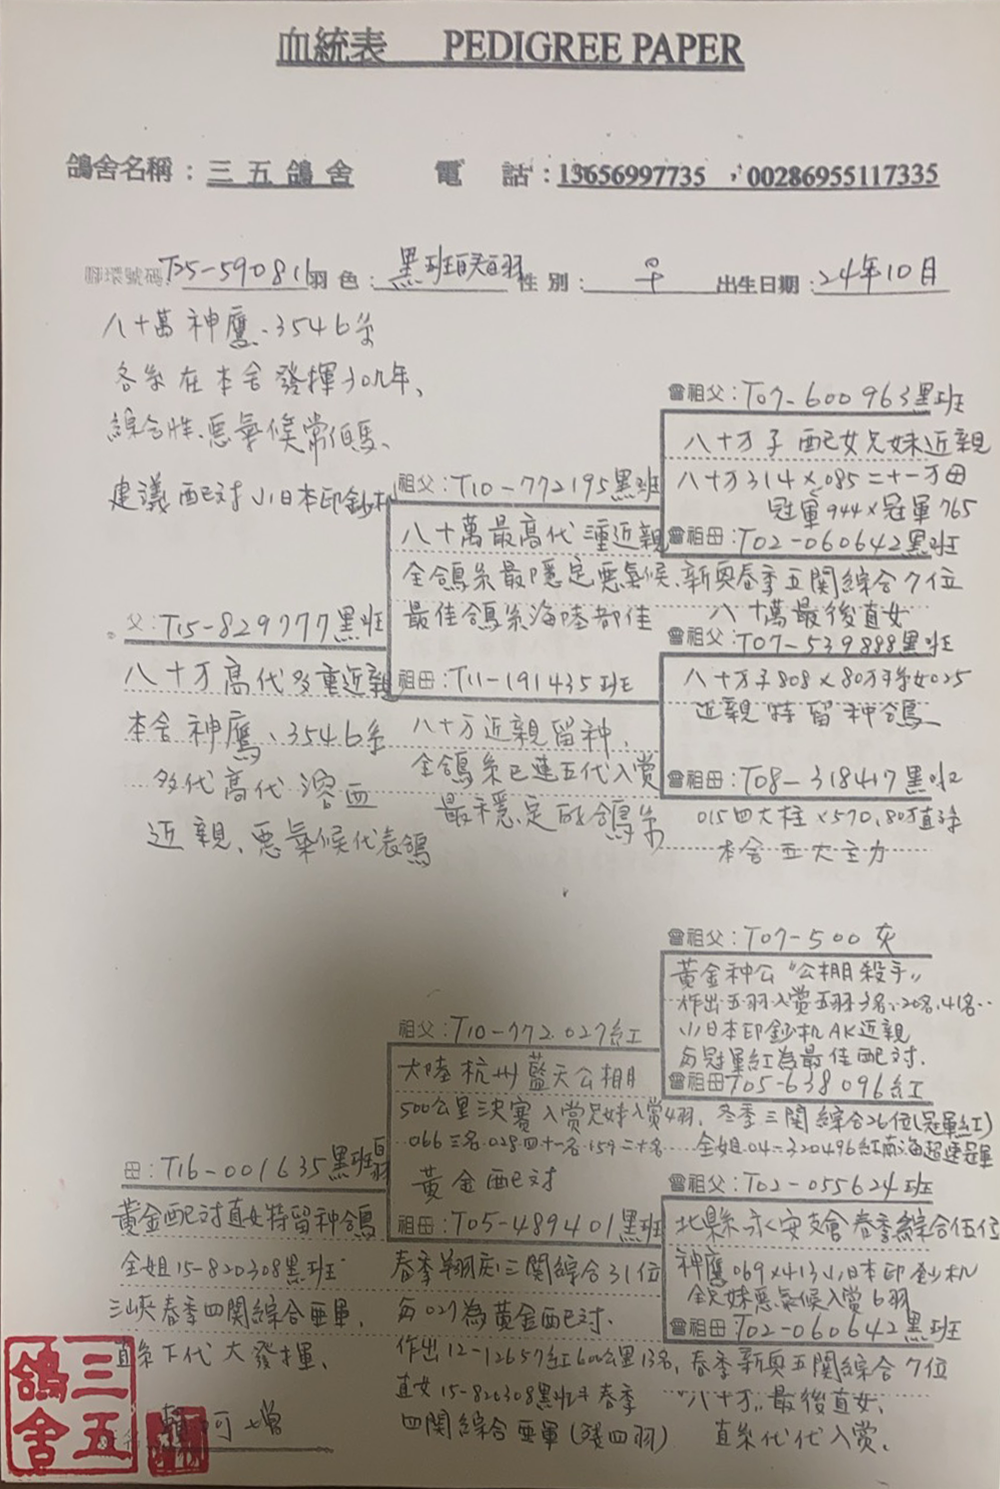 血統表 PEDIGREE PAPER
鴿舍名稱：三五鴿舍 電話：13656997735，00286955117335
腳環號碼：T25-590811 羽色：黑班白羽 性別：♀ 出生日期：24年10月
八十萬神鷹、3546系
各系在本舍發揮30几年、
綜合性、惡氣候常伯馬、
建議配对小日本印鈔机
父：T15-829777黑班
八十万高代多重近親
本舍神鷹、3546系
多代高代溶血
近親、惡氣候代表鴿
祖父：T10-772195黑班
八十萬最高代三重近親
全鴿系最隱定惡氣候、
最佳鴿系海陸都佳
祖母：T11-191435班
八十万近親留种、
全鴿系已連五代入賞
最穩定的鴿系
曾祖父：T07-600963黑班
八十万子配女兄妹近親
八十万314×085二十一万母
冠軍944×冠軍765
曾祖母：T02-060642黑班
新奥春季五関綜合7位
八十萬最後直女
曾祖父：T07-539888黑班
八十万子808×80万孫女025
近親特留种鴿
曾祖母：T08-318417黑
015四大柱×570.80万直
本舍五大主力
母：T16-001635黑班白羽
黃金配对直女特留种鴿
全姐15-820308黑班
三峽春季四関綜合亜軍、
直系下代大發揮、
祖父：T10-772.027紅
大陸杭州藍天公棚
500公里決賽入賞兄妹入賞4羽、冬季三関綜合26位(冠軍紅)
066三名.028四十一名.159二十名 全姐.04-320496紅南海超速冠軍
黃金配对
祖母：T05-489401黑班
春季翔庆三関綜合31位
与027為黃金配对.
作出12-12657紅600公里13名,
直女15-820308黑班♀春季
四関綜合亜軍(殘四羽)
曾祖父：T07-500灰
黃金种公“公棚殺手”
作出五羽入賞五羽3名、20名、41名..
小日本印鈔机AK近親
与冠軍紅為最佳配对.
曾祖母T05-638096紅
曾祖父：T02-055624班
北縣永安支會春季綜合伍位
神鷹069×413小日本印鈔机
全兄妹惡氣候入賞6羽
曾祖母：T02-060642黑班
春季新奥五関綜合7位
“八十万”最後直女、
直系代代入賞、
三五鴿舍